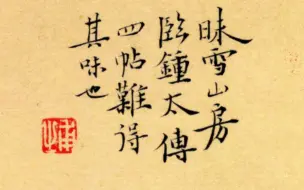 昧雪山房
臨鍾太傅
四帖難得
其味也